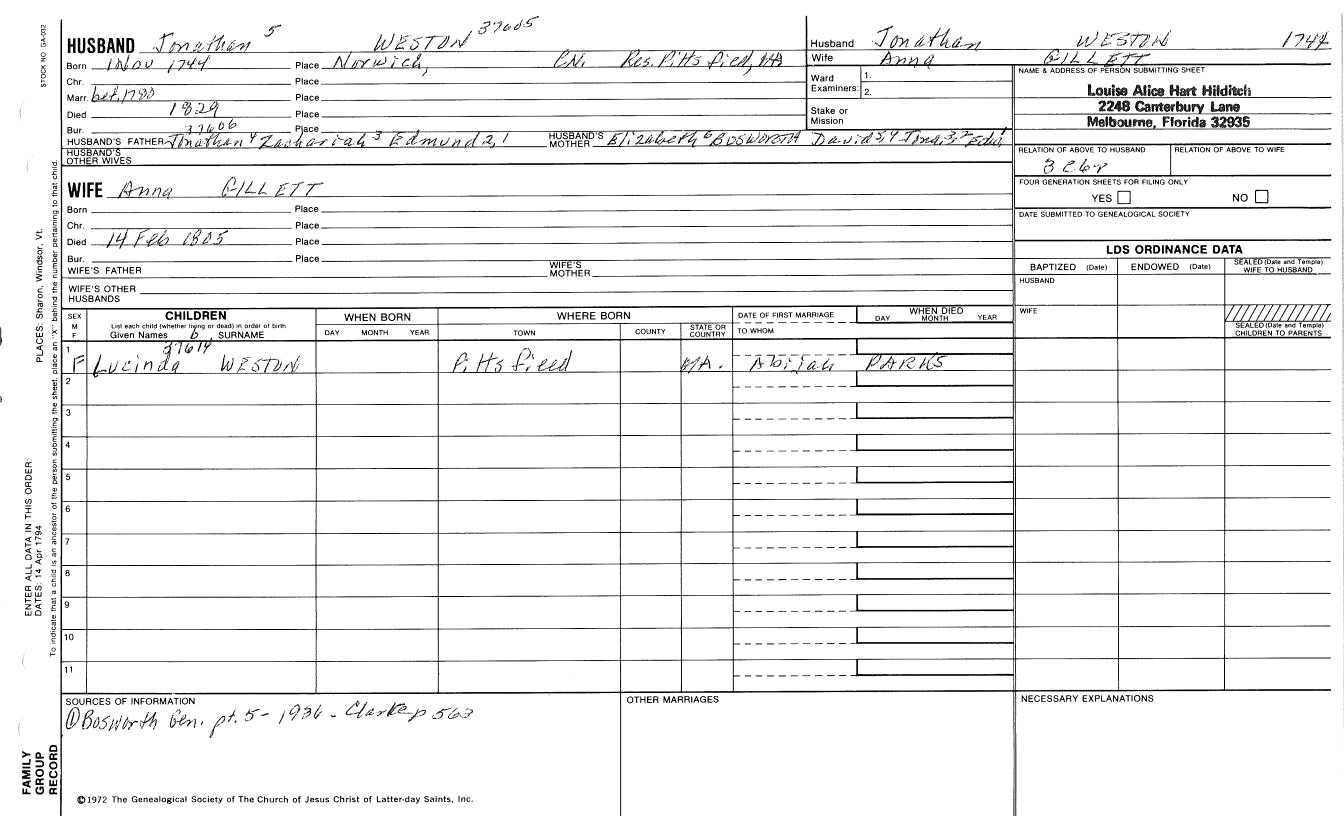 STOCK NO GA-032
HUSBAND Jonathan 5 WESTON 37605
Born 1 Nov 1744 Place Norwich, CN. Res. Pittsfied, MA
Chr. Place
Marr. bef. 1780 Place
Died 1829 Place
Bur. Place
37606
HUSBAND'S FATHER Jonathan 4 Zachariah 3 Edmund 2, 1 HUSBAND'S MOTHER Elizabeth 6 BOSWORTH David 5,4 Jona, 3,2 Edw, 1
HUSBAND'S OTHER WIVES
WIFE Anna GILLETT
Born Place
Chr. Place
Died 14 Feb 1805 Place
Bur. Place
WIFE'S FATHER WIFE'S MOTHER
WIFE'S OTHER HUSBANDS
Husband Jonathan WESTON 1744
Wife Anna GILLETT
Ward Examiners: 1.
2.
Stake or Mission
NAME & ADDRESS OF PERSON SUBMITTING SHEET
Louise Alice Hart Hilditch
2248 Canterbury Lane
Melbourne, Florida 32935
RELATION OF ABOVE TO HUSBAND RELATION OF ABOVE TO WIFE
3 C 6 r
FOUR GENERATION SHEETS FOR FILING ONLY
YES NO
DATE SUBMITTED TO GENEALOGICAL SOCIETY
LDS ORDINANCE DATA
BAPTIZED (Date) ENDOWED (Date) SEALED (Date and Temple) WIFE TO HUSBAND
HUSBAND
WIFE
SEALED (Date and Temple) CHILDREN TO PARENTS
SEX M F
CHILDREN
List each child (whether living or dead) in order of birth
Given Names 6 SURNAME
WHEN BORN
DAY MONTH YEAR
WHERE BORN
TOWN COUNTY STATE OR COUNTRY
DATE OF FIRST MARRIAGE
TO WHOM
WHEN DIED
DAY MONTH YEAR
37614
1 F Lucinda WESTON Pittsfieed MA. Abijah PARKS
2
3
4
5
6
7
8
9
10
11
SOURCES OF INFORMATION
① Bosworth Gen. pt. 5 - 1936 - Clarke p 563
OTHER MARRIAGES
NECESSARY EXPLANATIONS
©1972 The Genealogical Society of The Church of Jesus Christ of Latter-day Saints, Inc.
ENTER ALL DATA IN THIS ORDER:
DATES: 14 Apr 1794 PLACES: Sharon, Windsor, Vt.
To indicate that a child is an ancestor of the person submitting the sheet, place an "X" behind the number pertaining to that child.
FAMILY
GROUP
RECORD